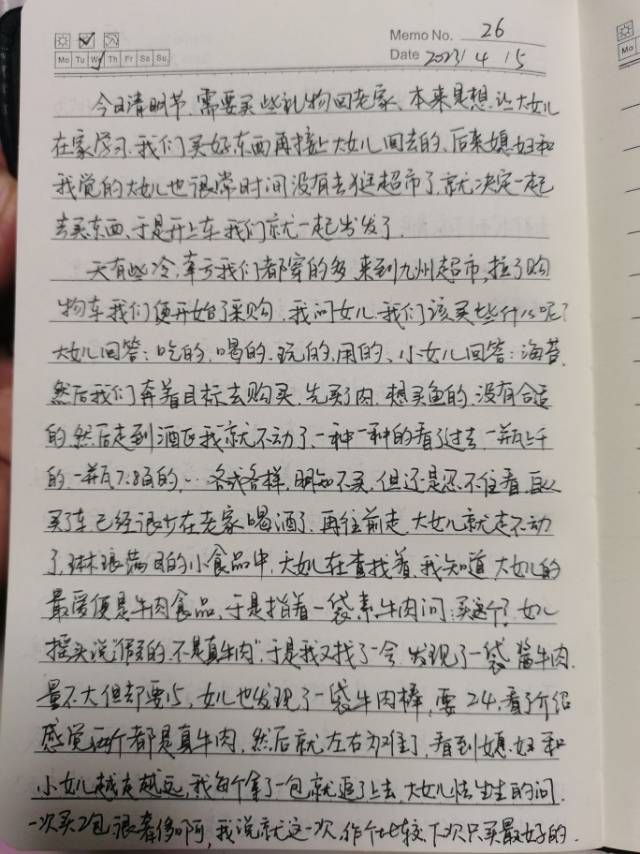 Memo No. 26
Mo Tu We Th Fr Sa Su
Date 2023 / 4 / 5
今日清明节,需要买些礼物回老家,本来是想让大女儿
在家学习,我们买好东西再接上大女儿回去的,后来媳妇和
我觉的大女儿也很常时间没有去逛超市了,就决定一起
去买东西,于是开上车我们就一起出发了.
天有些冷,幸亏我们都穿的多,来到九州超市,拉了购
物车我们便开始了采购,我问女儿,我们该买些什么呢?
大女儿回答:吃的,喝的,玩的,用的、小女儿回答:海苔,
然后我们奔着目标去购买,先买了肉,想买鱼的,没有合适
的,然后走到酒区我就不动了,一种一种的看了过去,一瓶上千
的,一瓶7.8百的,… 各式各样,明知不买,但还是忍不住看,自从
买了车已经很少在老家喝酒了,再往前走,大女儿就走不动
了,琳琅满目的小食品中,大女儿在查找着,我知道大女儿的
最爱便是牛肉食品,于是指着一袋素牛肉问:买这个?女儿
摇头说"假的,不是真牛肉",于是我又找了一会,发现了一袋酱牛肉,
量不大但却要15,女儿也发现了一袋牛肉棒,要24,看了介绍
感觉两个都是真牛肉,然后就左右为难了,看到媳妇和
小女儿越走越远,我每个拿了一包就追了上去,大女儿怯生生的问,
一次买2包很奢侈啊,我说就这一次,作个比较,下次只买最好的.
Mo